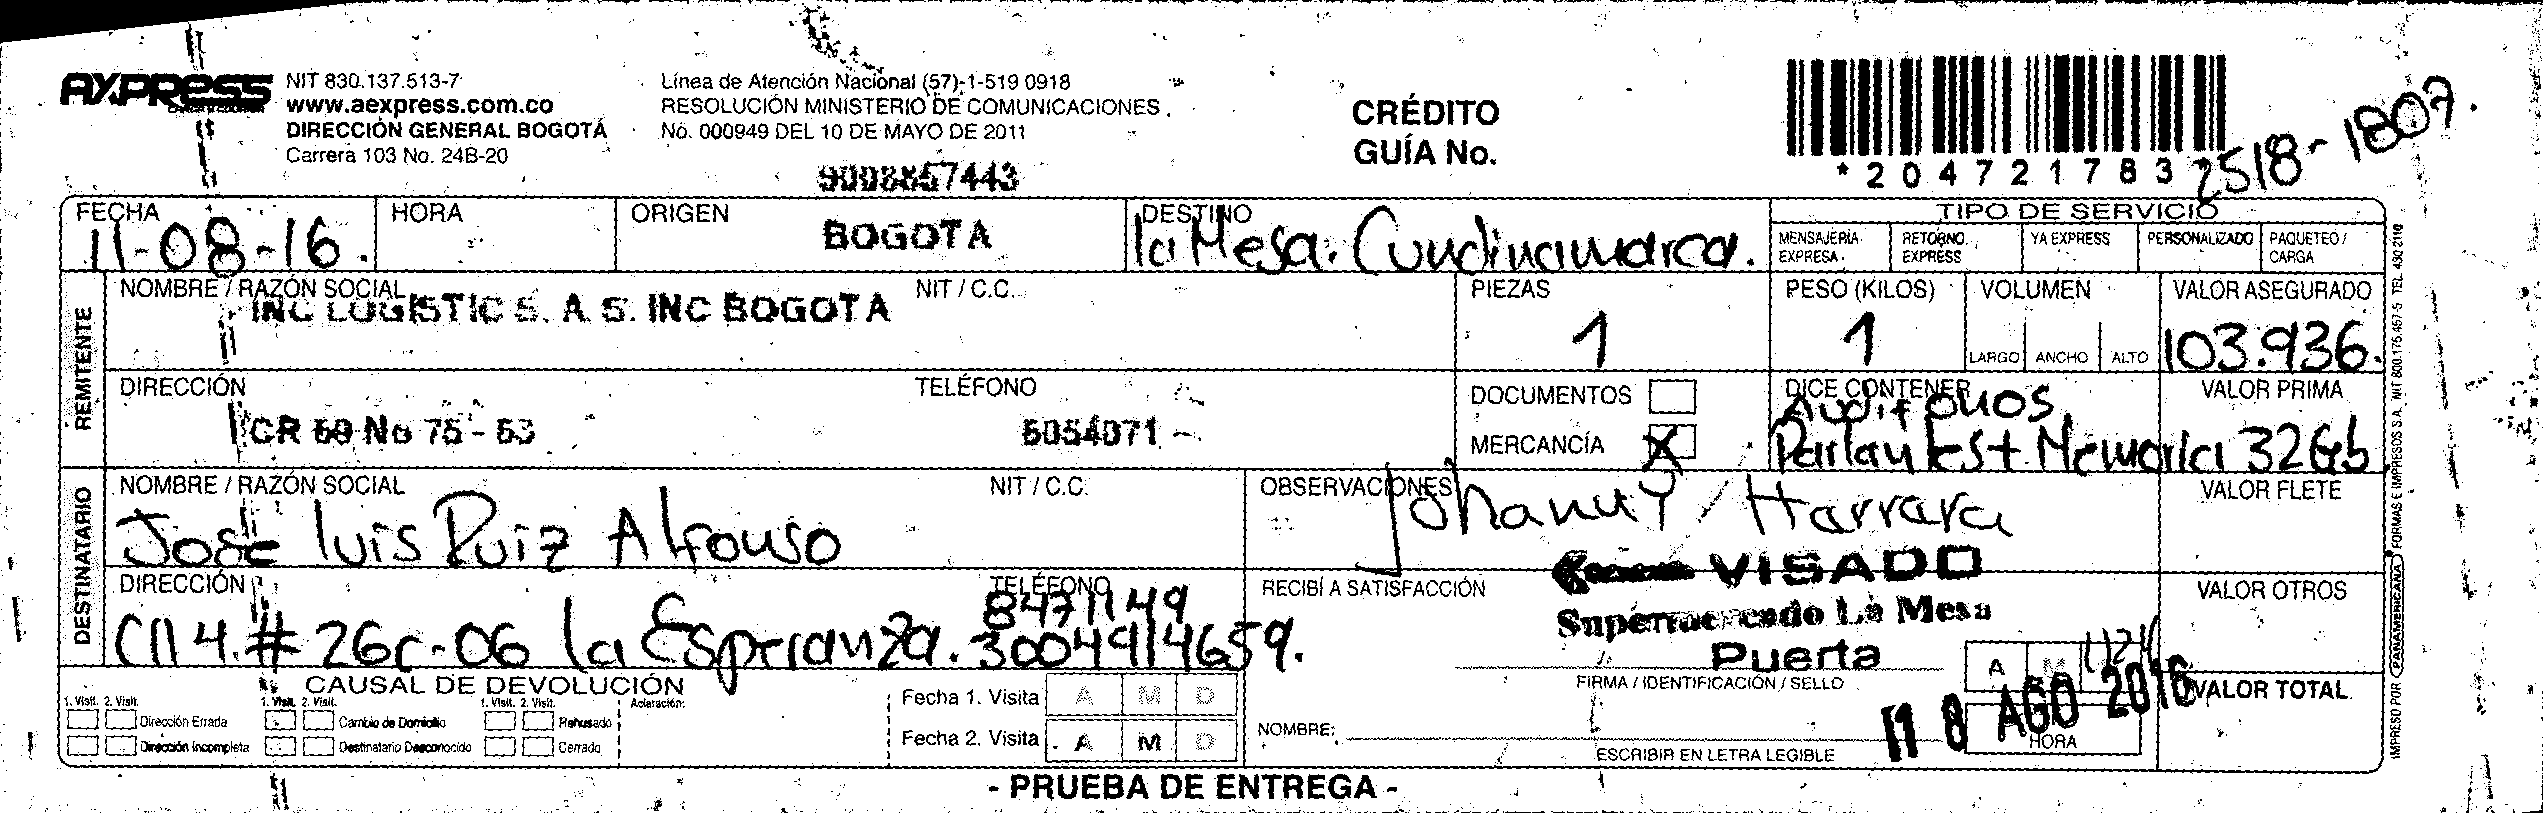 AXPRESS
NIT 830.137.513-7
www.aexpress.com.co
DIRECCIÓN GENERAL BOGOTÁ
Carrera 103 No. 24B-20
Línea de Atención Nacional (57)-1-519 0918
RESOLUCIÓN MINISTERIO DE COMUNICACIONES
No. 000949 DEL 10 DE MAYO DE 2011
9008857443
CRÉDITO
GUÍA No.
*204721783
2518-1807.
FECHA
11-08-16.
HORA
ORIGEN
BOGOTA
DESTINO
la Mesa. Cundinamarca.
TIPO DE SERVICIO
MENSAJERÍA EXPRESA
RETORNO EXPRESS
YA EXPRESS
PERSONALIZADO
PAQUETEO / CARGA
REMITENTE
NOMBRE / RAZÓN SOCIAL
INC LOGISTIC S. A S. INC BOGOTA
NIT / C.C.
PIEZAS
1
PESO (KILOS)
1
VOLUMEN
LARGO ANCHO ALTO
VALOR ASEGURADO
103.936.
DIRECCIÓN
CR 69 No 75 - 53
TELÉFONO
6054071
DOCUMENTOS
MERCANCÍA X
DICE CONTENER
Audifonos
Parlantes + Memoria 32Gb
VALOR PRIMA
DESTINATARIO
NOMBRE / RAZÓN SOCIAL
José luis Ruiz Alfonso
NIT / C.C.
OBSERVACIONES
Jhanny Harrara
VALOR FLETE
DIRECCIÓN
Cll 4. # 26c-06 la Esperanza.
TELÉFONO
8471149
3004914659.
RECIBÍ A SATISFACCIÓN
VISADO
Supermercado La Mesa
Puerta
FIRMA / IDENTIFICACIÓN / SELLO
A M
18 AGO 2016
HORA
VALOR OTROS
VALOR TOTAL
CAUSAL DE DEVOLUCIÓN
1. Visit. 2. Visit.
1. Visit. 2. Visit.
1. Visit. 2. Visit.
Aclaración:
Dirección Errada
Cambio de Domicilio
Rehusado
Dirección Incompleta
Destinatario Desconocido
Cerrado
Fecha 1. Visita A M D
Fecha 2. Visita A M D
NOMBRE:
ESCRIBIR EN LETRA LEGIBLE
- PRUEBA DE ENTREGA -
IMPRESO POR PANAMERICANA FORMAS E IMPRESOS S.A. NIT 800.175.457-5 TEL. 430 2110